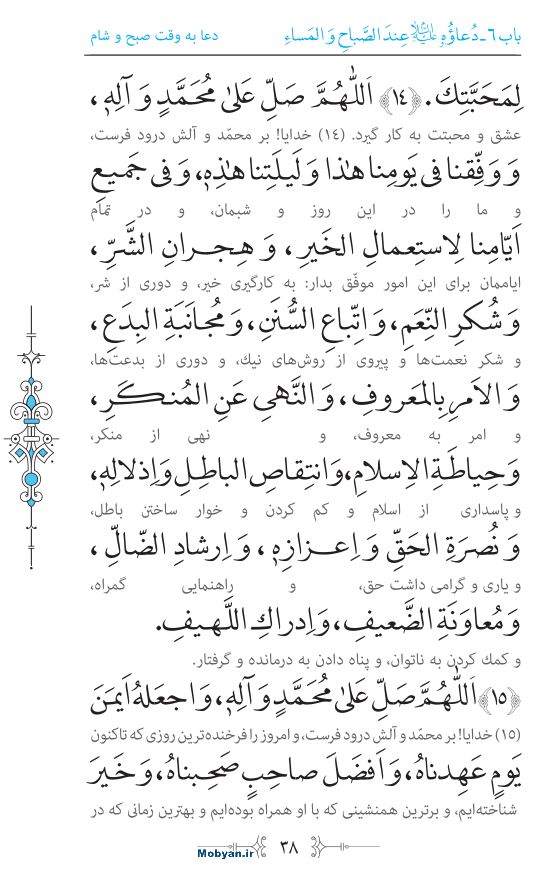 باب ٦ـ دُعاؤُهٗ علیه‌السلام عِندَ الصَّباحِ وَ المَساءِ دعا به وقت صبح و شام
لِمَحَبَّتِكَ. ﴿١٤﴾ اَللّٰهُمَّ صَلِّ عَلىٰ مُحَمَّدٍ وَ آلِهٖ،
عشق و محبتت به کار گیرد. (١٤) خدایا! بر محمّد و آلش درود فرست،
وَ وَفِّقنا فى يَومِنا هٰذا وَ لَيلَتِنا هٰذِهٖ، وَ فى جَميعِ
و ما را در این روز و شبمان، و در تمام
اَيّامِنا لِاستِعمالِ الخَيرِ، وَ هِجرانِ الشَّرِّ،
ایاممان برای این امور موفّق بدار: به کارگیری خیر، و دوری از شر،
وَ شُكرِ النِّعَمِ، وَ اتِّباعِ السُّنَنِ، وَ مُجانَبَةِ البِدَعِ،
و شکر نعمت‌ها و پیروی از روش‌های نیك، و دوری از بدعت‌ها،
وَ الاَمرِ بِالمَعروفِ، وَ النَّهىِ عَنِ المُنكَرِ،
و امر به معروف، و نهی از منکر،
وَ حِياطَةِ الاِسلامِ، وَ انتِقاصِ الباطِلِ وَ اِذلالِهٖ،
و پاسداری از اسلام و کم کردن و خوار ساختن باطل،
وَ نُصرَةِ الحَقِّ وَ اِعزازِهٖ، وَ اِرشادِ الضّالِّ،
و یاری و گرامی داشت حق، و راهنمایی گمراه،
وَ مُعاوَنَةِ الضَّعيفِ، وَ اِدراكِ اللَّهيفِ.
و کمك کردن به ناتوان، و پناه دادن به درمانده و گرفتار.
﴿١٥﴾ اَللّٰهُمَّ صَلِّ عَلىٰ مُحَمَّدٍ وَ آلِهٖ، وَ اجعَلهُ اَيمَنَ
(١٥) خدایا! بر محمّد و آلش درود فرست، و امروز را فرخنده‌ترین روزی که تاکنون
يَومٍ عَهِدناهُ، وَ اَفضَلَ صاحِبٍ صَحِبناهُ، وَ خَيرَ
شناخته‌ایم، و برترین همنشینی که با او همراه بوده‌ایم و بهترین زمانی که در
٣٨
Mobyan.ir